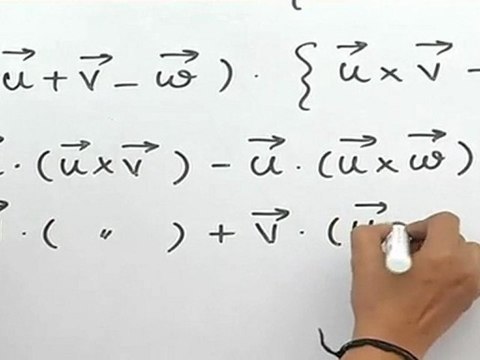 u⃗ + v⃗ − w⃗ ) · { u⃗ × v⃗ −
· ( u⃗ × v⃗ ) − u⃗ · ( u⃗ × w⃗ )
· ( " ) + v⃗ · ( u⃗